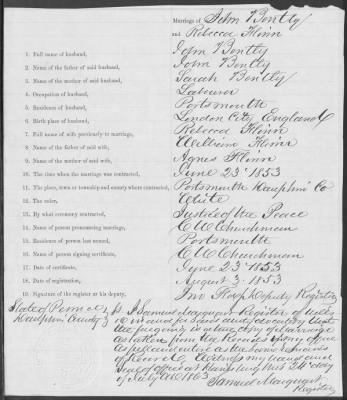 Marriage of John Bontly
and Rebecca Flinn
1. Full name of husband, John Bontly
2. Name of the father of said husband, John Bontly
3. Name of the mother of said husband, Sarah Bontly
4. Occupation of husband, Labourer
5. Residence of husband, Portsmouth
6. Birth place of husband, London City England
7. Full name of wife previously to marriage, Rebecca Flinn
8. Name of the father of said wife, William Flinn
9. Name of the mother of said wife, Agnes Flinn
10. The time when the marriage was contracted, June 23d 1853
11. The place, town or township and county where contracted, Portsmouth Dauphin Co
12. The color, White
13. By what ceremony contracted, Justice of the Peace
14. Name of person pronouncing marriage, C W Churchman
15. Residence of person last named, Portsmouth
16. Name of person signing certificate, C W Churchman
17. Date of certificate, June 23d 1853
18. Date of registration, August 3d 1853
19. Signature of the register or his deputy, Jno Deputy Register
State of Penn
Dauphin County } ss. I Samuel Marquart Register of Wills
&c in and for said County do certify that
the foregoing is a true copy of Marriage
as taken from the Records of my office
as full and entire as the same remains
of Record. Witness my hand and
seal of office at Harrisburg this 24th day
of July AD 1863
Samuel Marquart
Register